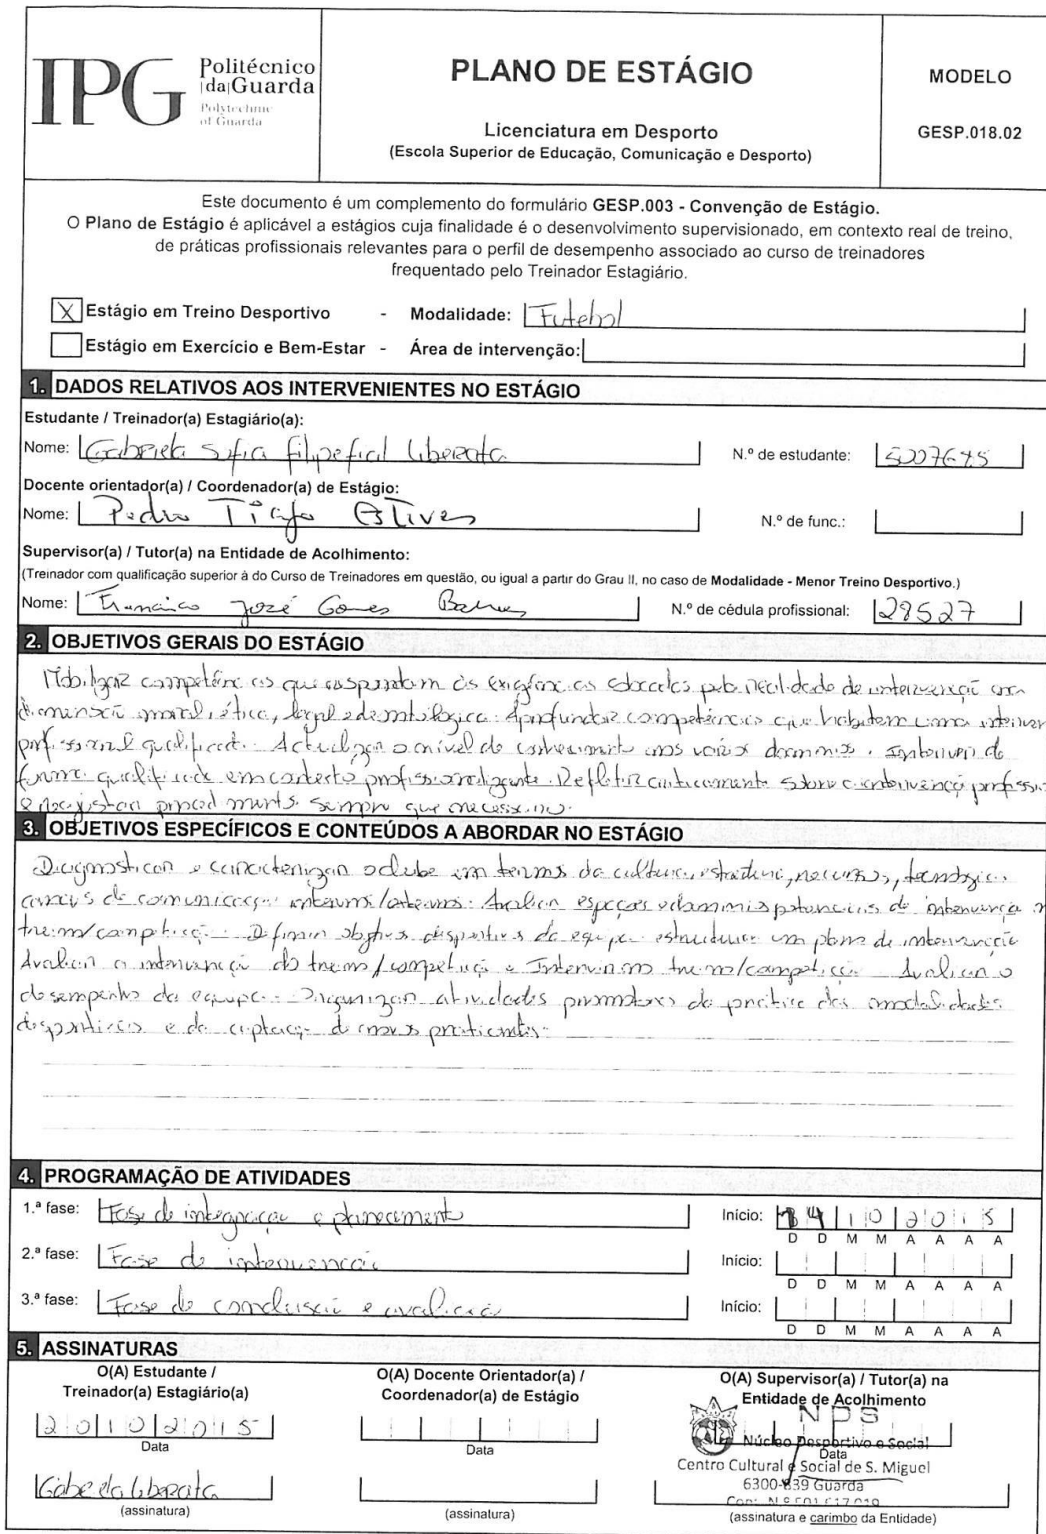 IPG Politécnico
|da|Guarda
Polytechnic
of Guarda
PLANO DE ESTÁGIO
Licenciatura em Desporto
(Escola Superior de Educação, Comunicação e Desporto)
MODELO
GESP.018.02
Este documento é um complemento do formulário GESP.003 - Convenção de Estágio.
O Plano de Estágio é aplicável a estágios cuja finalidade é o desenvolvimento supervisionado, em contexto real de treino,
de práticas profissionais relevantes para o perfil de desempenho associado ao curso de treinadores
frequentado pelo Treinador Estagiário.
X Estágio em Treino Desportivo - Modalidade: Futebol
Estágio em Exercício e Bem-Estar - Área de intervenção:
1. DADOS RELATIVOS AOS INTERVENIENTES NO ESTÁGIO
Estudante / Treinador(a) Estagiário(a):
Nome: Gabriela Sofia Liberata N.º de estudante:
Docente orientador(a) / Coordenador(a) de Estágio:
Nome: Pedro Tiago Esteves N.º de func.:
Supervisor(a) / Tutor(a) na Entidade de Acolhimento:
(Treinador com qualificação superior à do Curso de Treinadores em questão, ou igual a partir do Grau II, no caso de Modalidade - Menor Treino Desportivo.)
Nome: Francisco José Gomes N.º de cédula profissional: 28527
2. OBJETIVOS GERAIS DO ESTÁGIO
Mobilizar competências que respondam às exigências colocadas pela realidade de intervenção
dimensão moral, ética, legal e deontológica. Aprofundar competências que habilitem uma
profissional qualificada. Actualizar o nível de conhecimento nos vários domínios. Intervir de
forma qualificada em contexto profissionalizante. Refletir criticamente sobre a intervenção
e reajustar procedimentos sempre que necessário.
3. OBJETIVOS ESPECÍFICOS E CONTEÚDOS A ABORDAR NO ESTÁGIO
Diagnosticar e caracterizar o clube em termos da cultura, estrutura, recursos, tecnologia,
canais de comunicação internos/externos. Analisar espaços e domínios potenciais de intervenção
treino/competição. Definir objetivos desportivos da equipa estruturar um plano de intervenção
Avaliar a intervenção do treino/competição e Intervir no treino/competição. Avaliar o
desempenho da equipa. Organizar atividades promotoras da prática das modalidades
desportivas e da captação de novos praticantes.
4. PROGRAMAÇÃO DE ATIVIDADES
1.ª fase: Fase de integração e planeamento Início: 14 10 2015
D D M M A A A A
2.ª fase: Fase de intervenção Início:
D D M M A A A A
3.ª fase: Fase de conclusão e avaliação Início:
D D M M A A A A
5. ASSINATURAS
O(A) Estudante /
Treinador(a) Estagiário(a)
20102015
Data
Gabriela Liberata
(assinatura)
O(A) Docente Orientador(a) /
Coordenador(a) de Estágio
Data
(assinatura)
O(A) Supervisor(a) / Tutor(a) na
Entidade de Acolhimento
NDS
Núcleo Desportivo e Social
Data
Centro Cultural e Social de S. Miguel
6300-839 Guarda
(assinatura e carimbo da Entidade)